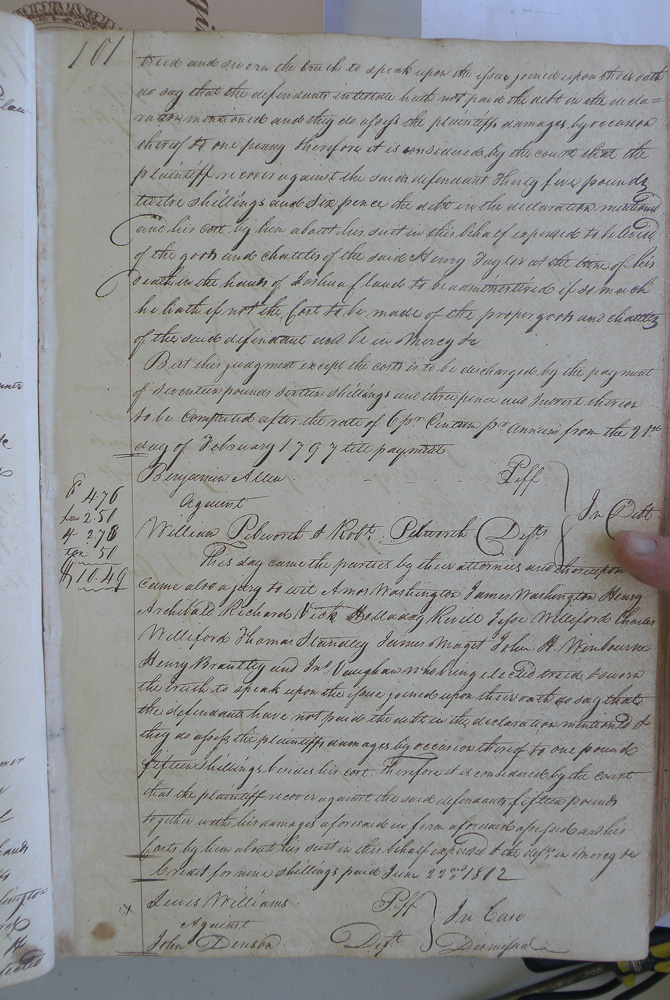 101
tried and sworn the truth to speak upon the issue joined upon their oath
do say that the defendants intestate hath not paid the debt in the decla=
ration mentioned and they do assess the plaintiffs damages by occasion
thereof to one penny therefore it is considered by the court that the
plaintiff recover against the said defendant Thirty five pounds
twelve shillings and six pence the debt in the declaration mentioned
and his cost by him about his suit in this behalf expended to be levied
of the goods and chattles of the said Henry Taylor at the time of his
death in the hands of Joshua to be administered if so much
he hath if not the Cost to be made of the proper goods and chattles
of the said defendant and be in Mercy &c
But this judgment except the costs is to be discharged by the payment
of seventeen pounds sixteen shillings and three pence and Interest thereon
to be Computed after the rate of 6 pr Centum pr annum from the 21st
day of February 1797 till payment
Benjamin Allen Plff
against
In Debt
William Pilworth & Robt. Pilworth Defts
C 4.76
2.50
4 2.73
tax 50
$10.49
This day came the parties by their attornies and thereupon
came also a jury to wit Amos Washington James Washington Henry
Archibald Richard Vick Holladay Revill Jesse Williford Charles
Williford Thomas Standley James Maget John H. Winbourne
Henry Brantley and Jno. Vaughan who being elected tried & sworn
the truth to speak upon the issue joined upon their oath do say that
the defendants have not paid the debt in the declaration mentioned &
they do assess the plaintiffs damages by occasion thereof to one pound
fifteen shillings besides his cost. Therefore it is considered by the court
that the plaintiff recover against the said defendants fifteen pounds
together with his damages aforesaid in form aforesaid assessed and his
Costs by him about his suit in this behalf expended & the defts. in Mercy &c
Credit for nine shillings paid June 22nd 1812
x Lewis Williams Plff
Against
In Case
John Denson Deft Dismissed